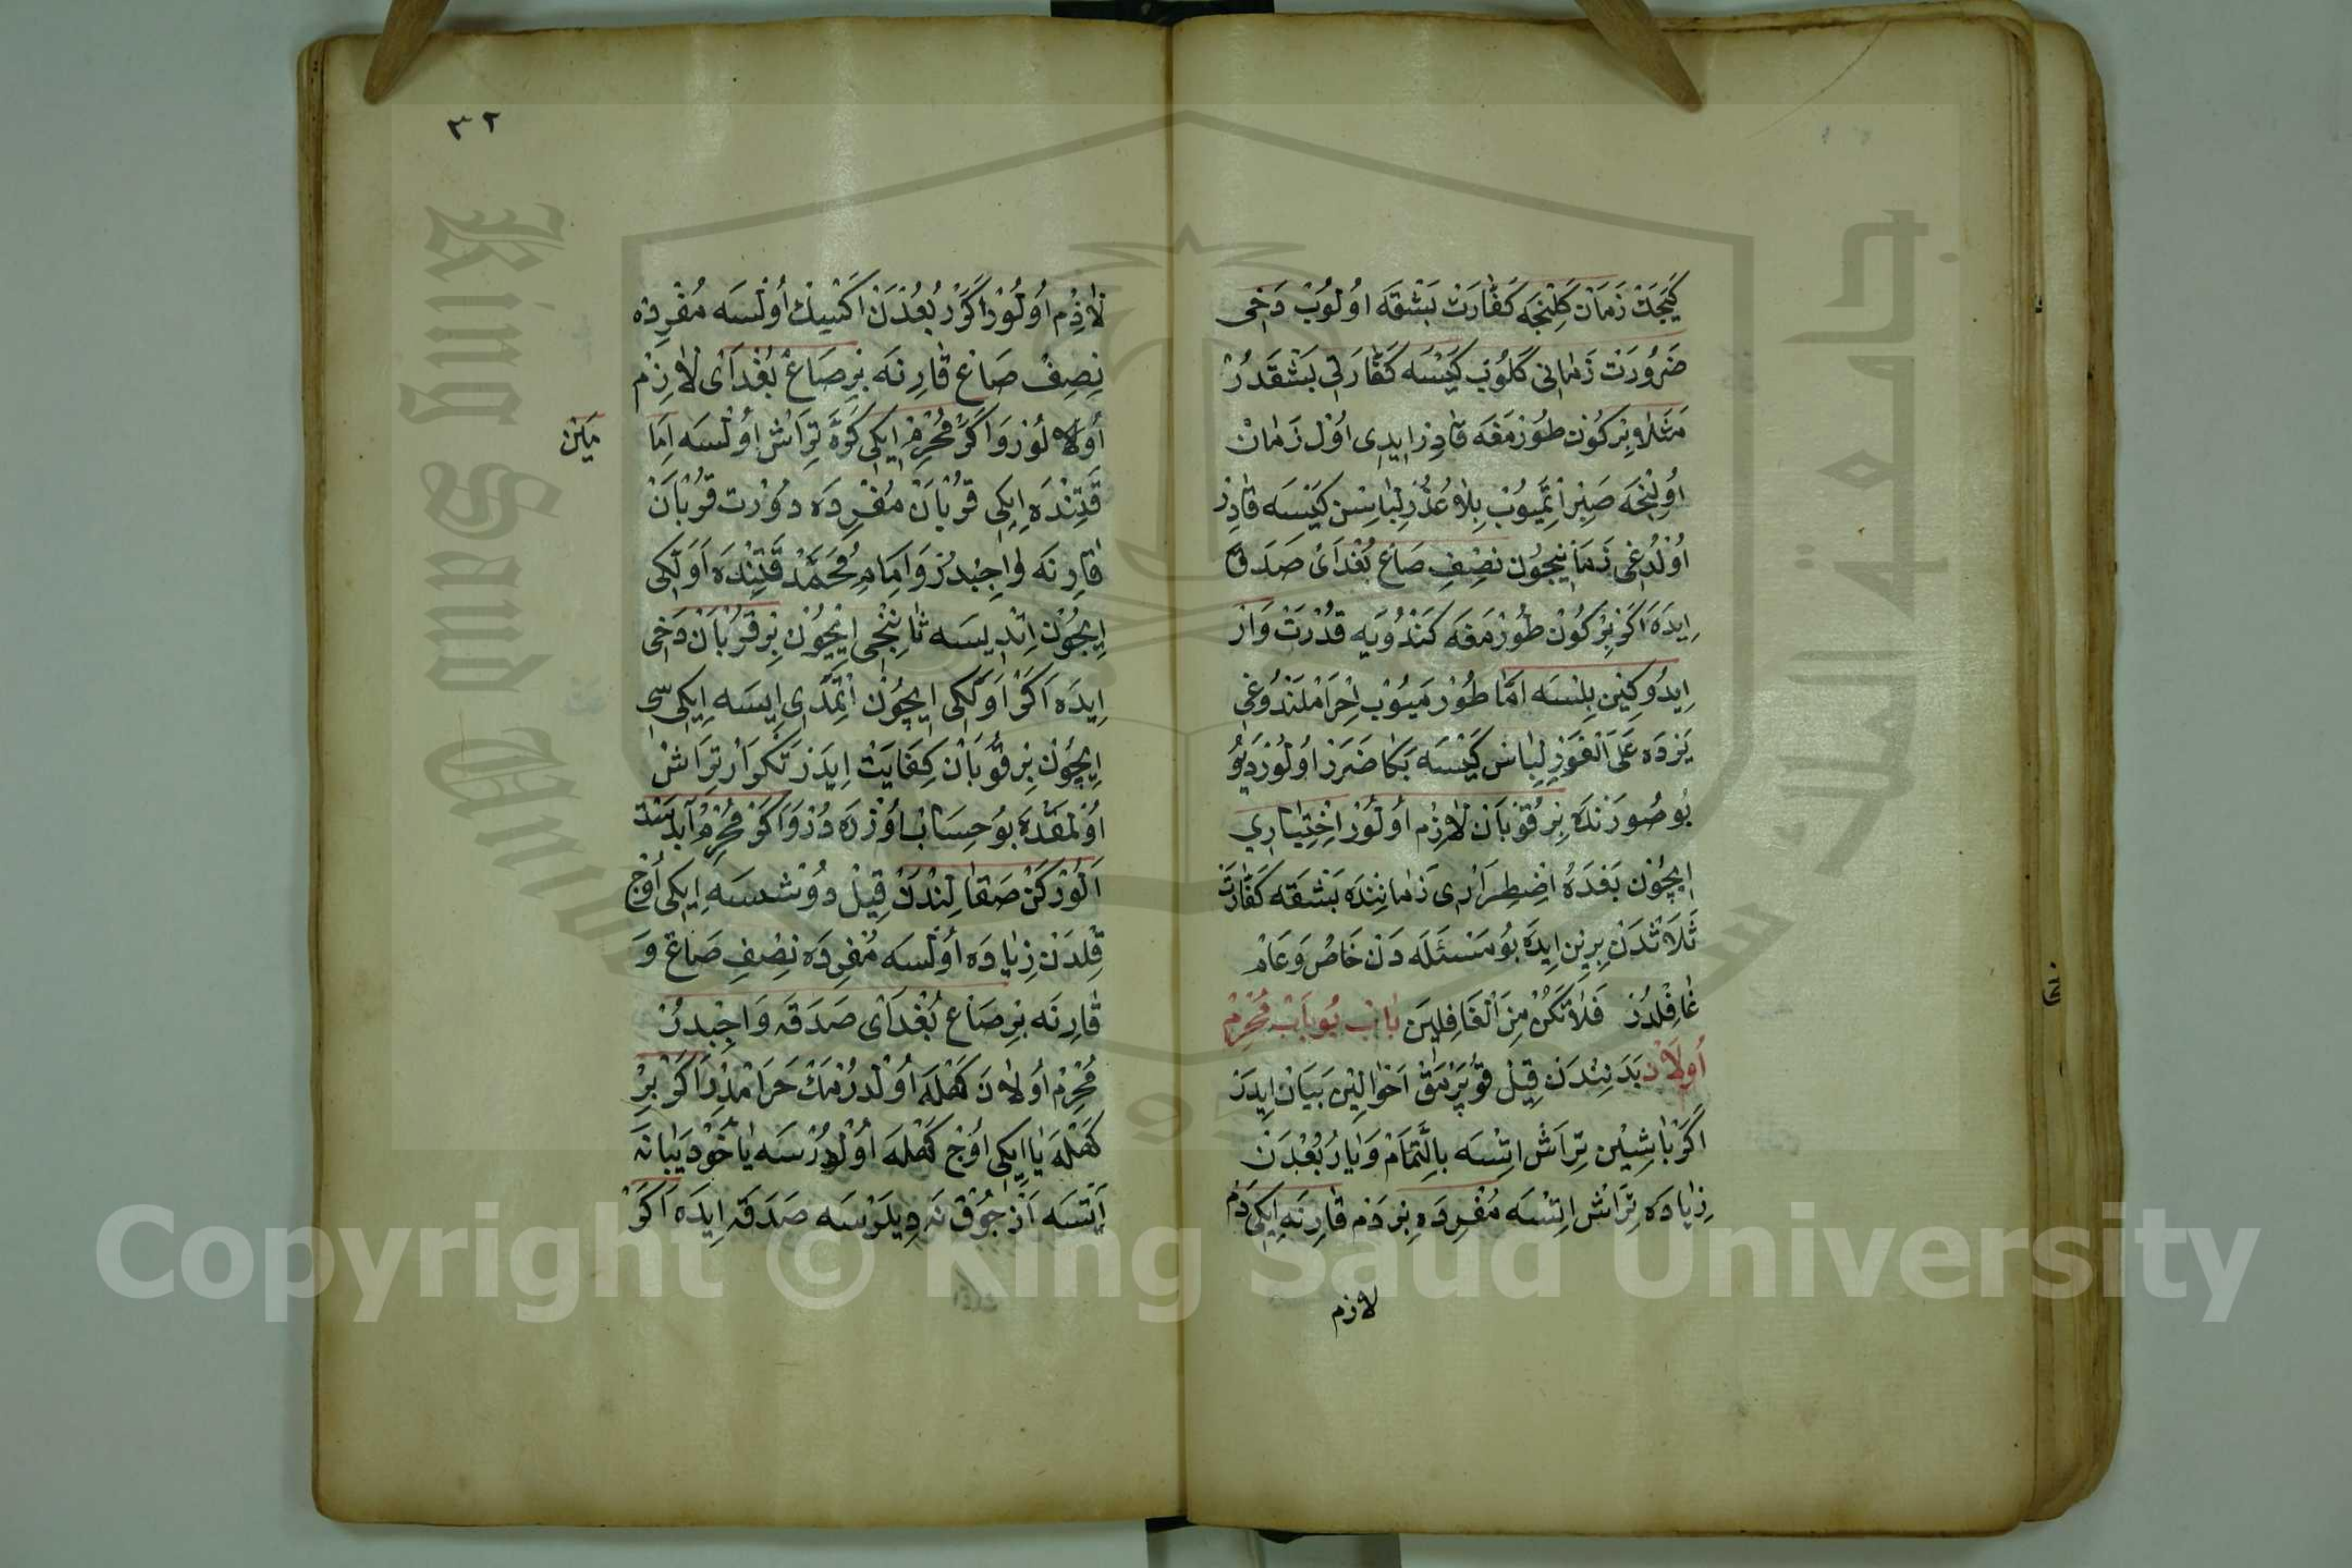 كَيَجَكْ زَمَانْ كَلِنْجَه كَفَّارَتْ بَشْقَه اُولُوبْ دَخِى
ضَرُورَتْ زَمَانِى كَلُوبْ كَيْسَه كَفَّارَتِى بَشْقَدُرْ
مَثَلَا بِرْ كُونْ طُورْمَغَه قَادِرْ اِيدِى اُولْ زَمَانْ
اُولِنْجَه صَبِرْ اِتْمَيُوبْ بِلَا عُذُرْ لِبَاسِنْ كَيْسَه قَادِرْ
اُولْدُغِى زَمَانِيچُونْ نِصِفِ صَاعْ بُغْدَاىْ صَدَقَه
اِيدَه اَكَرْ بِرْ كُونْ طُورْمَغَه كَنْدُويَه قُدْرَتْ وَارْ
اِيدُوكِنِينْ بِلْسَه اَمَّا طُورْمَيُوبْ اِحْرَامْلَنْدُوغِى
يَرْدَه عَلَى الْفَوْرِ لِبَاسْ كَيْسَه بَكَا ضَرَرْ اُولُورْ دِيُو
بُو صُورَتْدَه بِرْ قُرْبَانْ لَازِمْ اُولُورْ اِخْتِيَارِي
اِيچُونْ بَعْدَهُ اِضْطِرَارِى زَمَانِنْدَه بَشْقَه كَفَّارَتْ
ثَلَاثَدَنْ بِرِينْ اِيدَه بُو مَسْئَلَه دَنْ خَاصْ وَعَامْ
غَافِلْدُرْ فَلَا تَكُنْ مِنَ الْغَافِلِينَ بَابْ بُو بَابْ مُحْرِمْ
اُولَانْ بَدَنِنْدَنْ قِيلْ قُوپَرْمَقْ اَحْوَالِينْ بَيَانْ اِيدَرْ
اَكَرْ بَاشِينْ تِرَاشْ اِتْسَه بِالتَّمَامْ وَيَا رُبُعْدَنْ
زِيَادَه تِرَاشْ اِتْسَه مُفْرِدَه بِرْ دَمْ قَارِنَه اِيكِى دَمْ
لازم
٣٢
لَازِمْ اُولُورْ اَكَرْ رُبُعْدَنْ اَكْسِيكْ اُولْسَه مُفْرِدَه
نِصِفْ صَاعْ قَارِنَه بِرْ صَاعْ بُغْدَاىْ لَازِمْ
اُولُورْ وَاكَرْ مُحْرِمْ اِيكِى كَرَّه تِرَاشْ اُولْسَه اِمَامَيْنْ
قَتِنْدَه اِيكِى قُرْبَانْ مُفْرِدَه دُورْتْ قُرْبَانْ
قَارِنَه وَاجِبْدُرْ وَامَامِ مُحَمَّدْ قَتِنْدَه اَوَّلْكِى
اِيچُونْ اِتْدِيسَه ثَانِينْجِى اِيچُونْ بِرْ قُرْبَانْ دَخِى
اِيدَه اَكَرْ اَوَّلْكِى اِيچُونْ اِتْمَدِى اِيسَه اِيكِىسِى
اِيچُونْ بِرْ قُرْبَانْ كِفَايَتْ اِيدَرْ تَكْرَارْ تِرَاشْ
اُولْمَقْدَه بُو حِسَابْ اُوزْرَه دُرْ وَاكَرْ مُحْرِمْ آبْدَسْتْ
اَلُورْكَنْ صَقَالِنْدَنْ قِيلْ دُوشْسَه اِيكِى اُوچْ
قِلْدَنْ زِيَادَه اُولْسَه مُفْرِدَه نِصِفِ صَاعْ وَ
قَارِنَه بِرْ صَاعْ بُغْدَاىْ صَدَقَه وَاجِبْدُرْ
مُحْرِمْ اُولَانَ كَهْلَه اُولْدُرْمَكْ حَرَامْدُرْ اَكَرْ بِرْ
كَهْلَه يَا اِيكِى اُوچْ كَهْلَه اُولْدُرْسَه يَاخُودْ يَبَانَه
آتْسَه اَزْ چُوقْ نَه دِيلَرْسَه صَدَقَه اِيدَه اَكَرْ